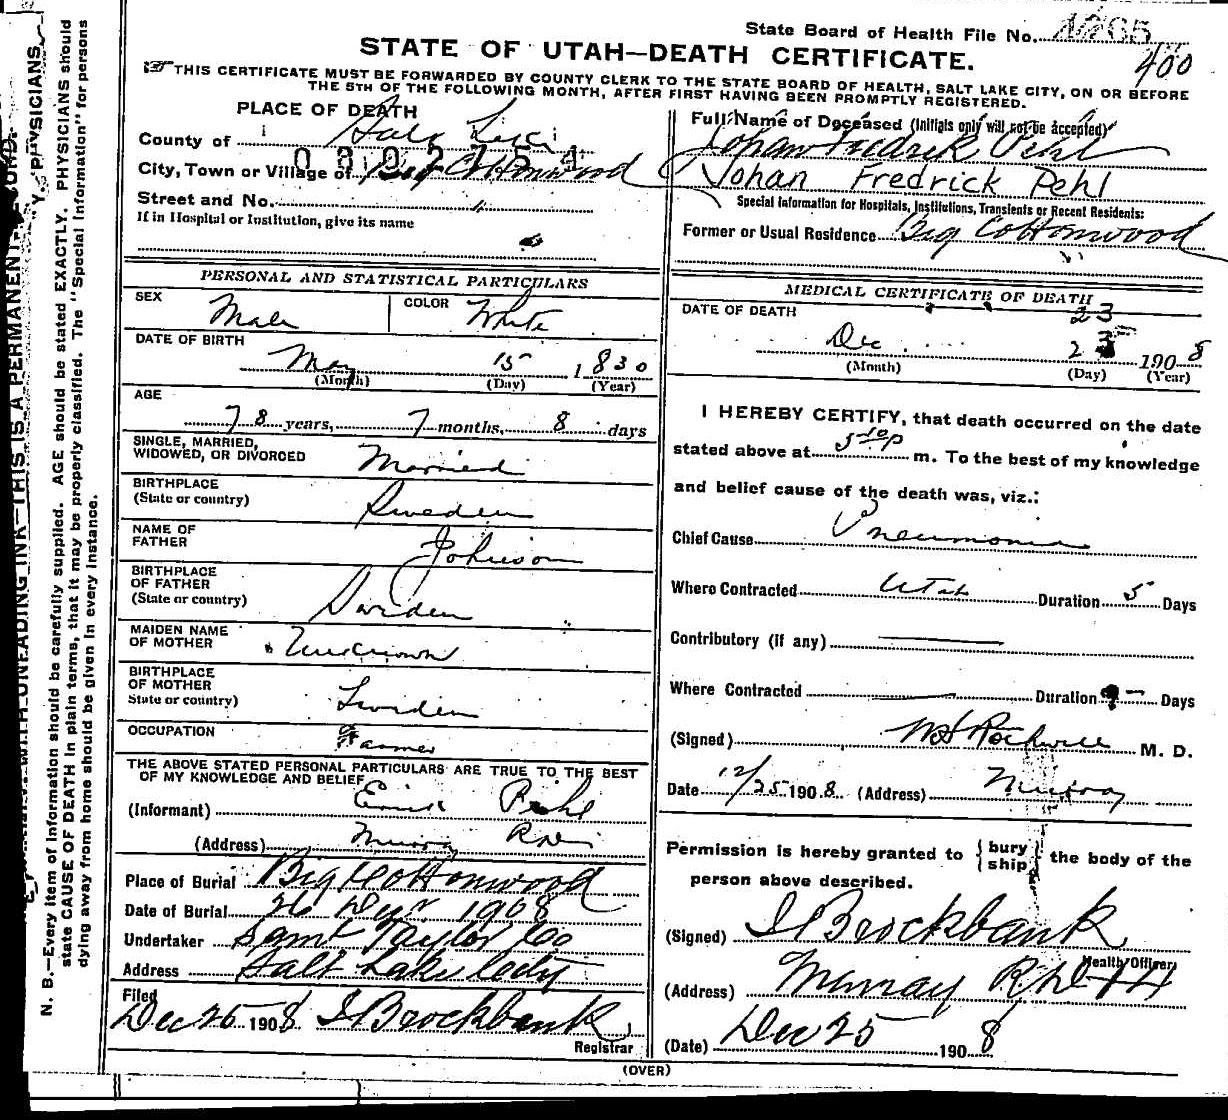 State Board of Health File No. 1265
400
STATE OF UTAH—DEATH CERTIFICATE.
THIS CERTIFICATE MUST BE FORWARDED BY COUNTY CLERK TO THE STATE BOARD OF HEALTH, SALT LAKE CITY, ON OR BEFORE
THE 5TH OF THE FOLLOWING MONTH, AFTER FIRST HAVING BEEN PROMPTLY REGISTERED.
PLACE OF DEATH
County of Salt Lake
City, Town or Village of Big Cottonwood
Street and No.
If in Hospital or Institution, give its name
Full Name of Deceased (Initials only will not be accepted)
Johan Fredrick Pehl
Johan Fredrick Pehl
Special Information for Hospitals, Institutions, Transients or Recent Residents:
Former or Usual Residence Big Cottonwood
PERSONAL AND STATISTICAL PARTICULARS
SEX Male COLOR White
DATE OF BIRTH
May 15 1830
(Month) (Day) (Year)
AGE
78 years, 7 months, 8 days
SINGLE, MARRIED,
WIDOWED, OR DIVORCED Married
BIRTHPLACE
(State or country) Sweden
NAME OF
FATHER Johnson
BIRTHPLACE
OF FATHER
(State or country) Sweden
MAIDEN NAME
OF MOTHER Unknown
BIRTHPLACE
OF MOTHER
State or country) Sweden
OCCUPATION Farmer
THE ABOVE STATED PERSONAL PARTICULARS ARE TRUE TO THE BEST
OF MY KNOWLEDGE AND BELIEF
(Informant)
(Address) Murray
Place of Burial Big Cottonwood
Date of Burial 26 Dec 1908
Undertaker Saml Taylor Co
Address Salt Lake City
Filed
Dec 25 1908 I Brockbank
Registrar
MEDICAL CERTIFICATE OF DEATH
DATE OF DEATH 23
Dec 23 1908
(Month) (Day) (Year)
I HEREBY CERTIFY, that death occurred on the date
stated above at 5 10 p m. To the best of my knowledge
and belief cause of the death was, viz.:
Chief Cause Pneumonia
Where Contracted Utah Duration 5 Days
Contributory (if any)
Where Contracted Duration Days
(Signed) Rockwell M. D.
Date 12/25 1908. (Address) Murray
Permission is hereby granted to {bury ship} the body of the
person above described.
(Signed) I Brockbank
Health Officer
(Address) Murray
(Date) Dec 25 1908
(OVER)
N. B.—Every item of information should be carefully supplied. AGE should be stated EXACTLY. PHYSICIANS should
state CAUSE OF DEATH in plain terms, that it may be properly classified. The "Special Information" for persons
dying away from home should be given in every instance.
WITH UNFADING INK—THIS IS A PERMANENT RECORD.
PHYSICIANS